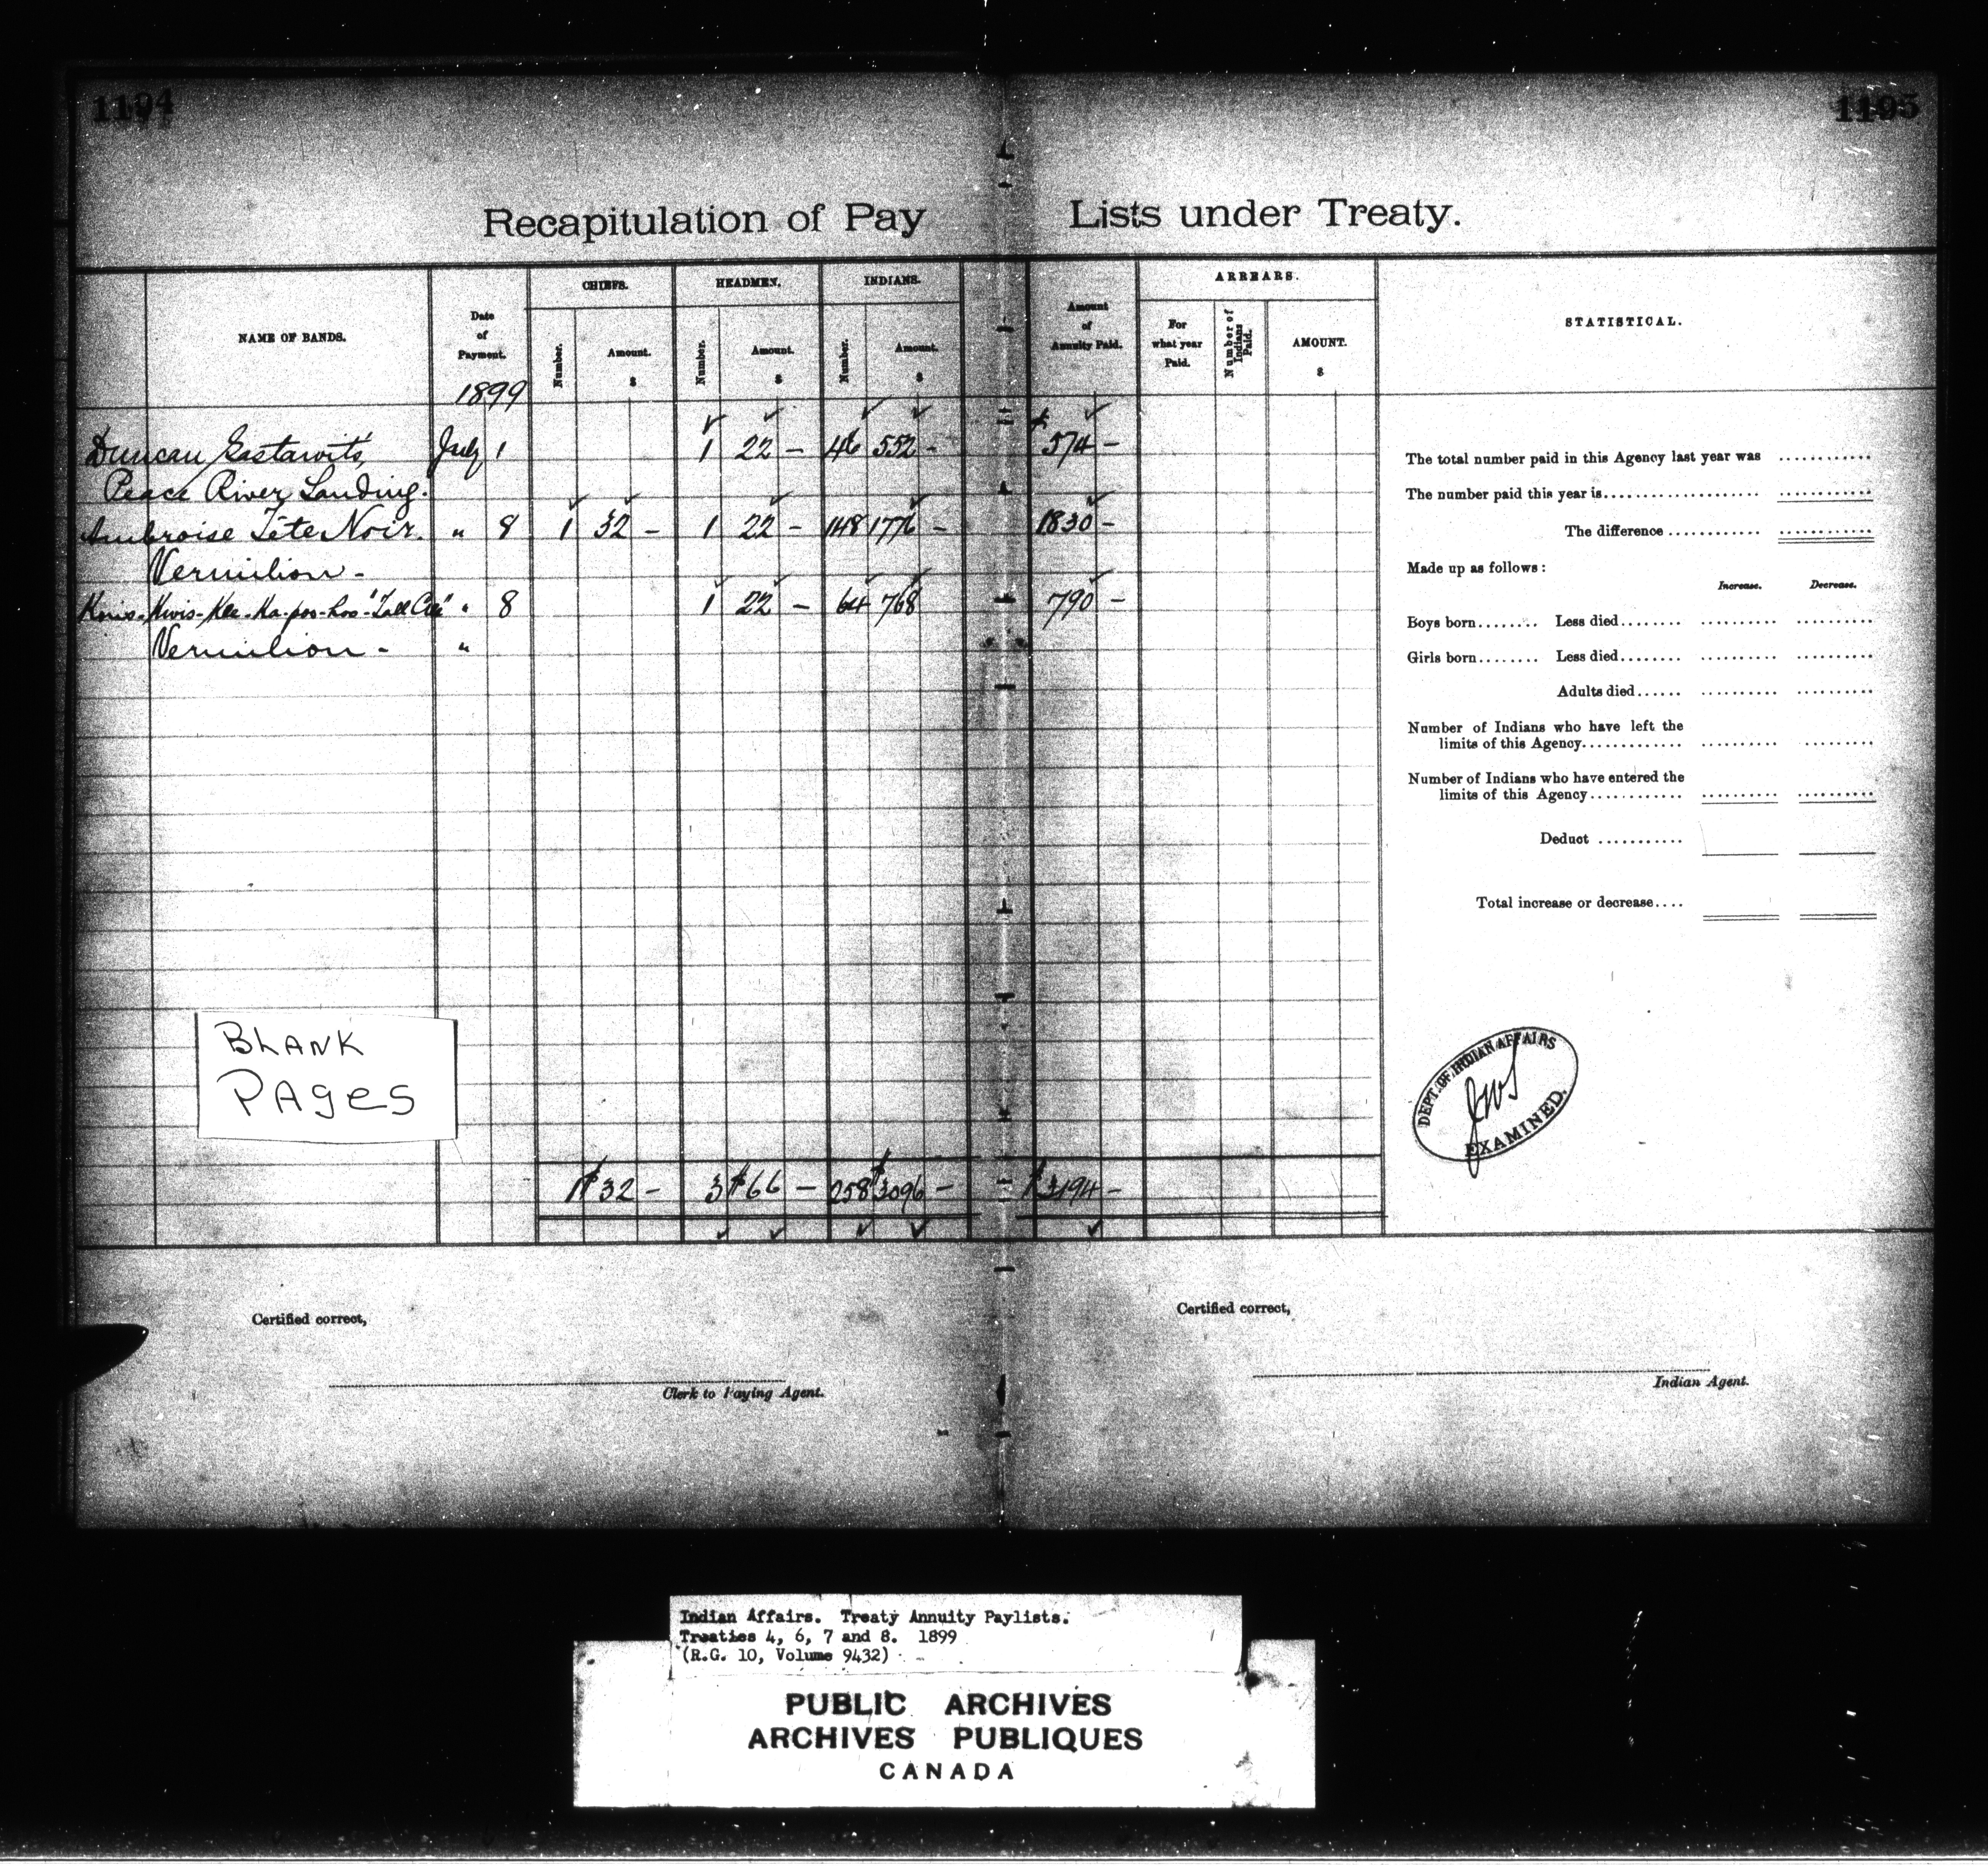 1194
1195
Recapitulation of Pay Lists under Treaty.
NAME OF BANDS.
Date of Payment.
1899
CHIEFS.
Number.
Amount.
$
HEADMEN.
Number.
Amount.
$
INDIANS.
Number.
Amount.
$
Amount of Annuity Paid.
ARREARS.
For what year Paid.
Number of Indians Paid.
AMOUNT.
$
STATISTICAL.
Duncan July 1 1 22 - 46 552 - $ 574 -
Peace River Landing.
Ambroise Tête Noir. " 8 1 32 - 1 22 - 148 1776 - 1830 -
Vermilion -
" 8 1 22 - 64 768 790 -
Vermilion - "
1 $32 - 3 $66 - 258 $3096 - $3194 -
The total number paid in this Agency last year was ............
The number paid this year is....................
The difference ............
Made up as follows:
Increase. Decrease.
Boys born........ Less died........
Girls born........ Less died........
Adults died......
Number of Indians who have left the
limits of this Agency.............
Number of Indians who have entered the
limits of this Agency............
Deduct ...........
Total increase or decrease....
DEPT. OF INDIAN AFFAIRS
EXAMINED.
BLANK
PAGES
Certified correct,
Clerk to Paying Agent.
Certified correct,
Indian Agent.
Indian Affairs. Treaty Annuity Paylists.
Treaties 4, 6, 7 and 8. 1899
(R.G. 10, Volume 9432)
PUBLIC ARCHIVES
ARCHIVES PUBLIQUES
CANADA